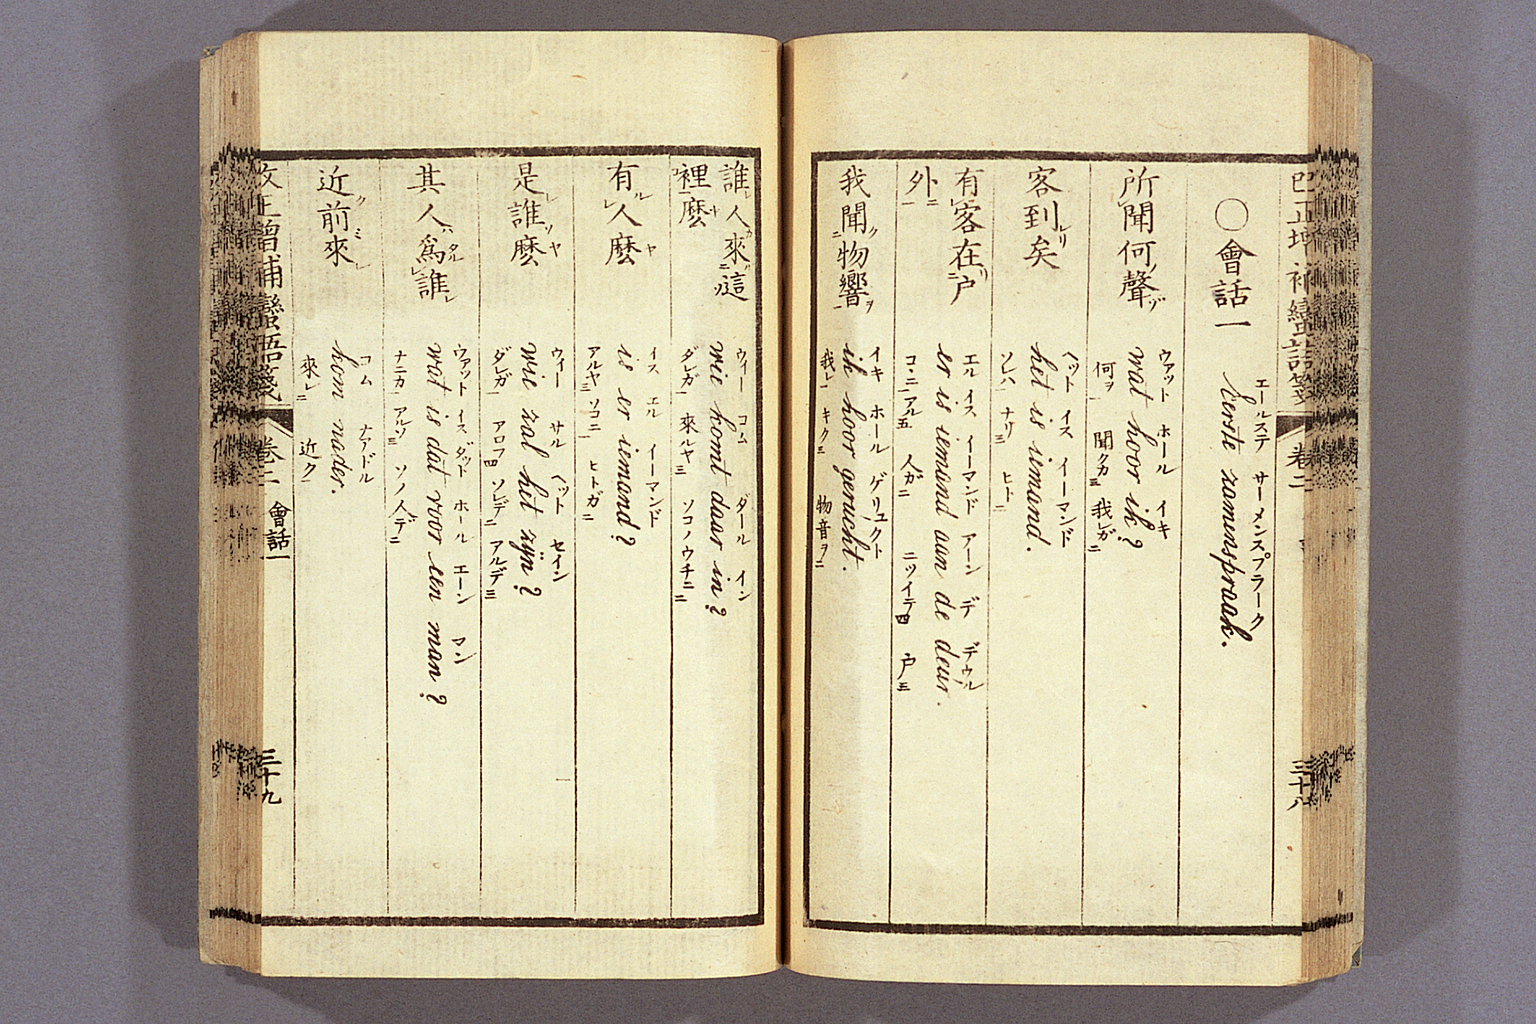 ○會話一
エールステ サーメンスプラーク
Eerste zamenspraak.
所聞何聲
ウァット ホール イキ
wat hoor ik?
何ヲ一 聞クカ三 我レガ二
客到矣
ヘット イス イーマンド
het is iemand.
ソレハ一 ナリ三 ヒト二
有客在戸
外
エル イス イーマンド アーン デ デウル
er is iemand aan de deur.
コヽニ一アル五 人ガ二 ニツイテ四 戸三
我聞物響
イキ ホール ゲリュクト
ik hoor gerucht.
我レ一 キク三 物音ヲ二
誰人來這
裡麽
ウィー コム ダール イン
wie komt daar in?
ダレガ一 來ルヤ三 ソコノウチニ二
有人麽
イス エル イーマンド
is er iemand?
アルヤ三 ソコニ一 ヒトガ二
是誰麽
ウィー サル ヘット セイン
wie zal het zijn?
ダレガ一 アロフ四 ソレデ二 アルデ三
其人爲誰
ウァット イス ダット ホール エーン マン
wat is dat voor een man?
ナニカ一 アルソ三 ソノ人デ二
近前來
コム ナアドル
kom nader.
來レ二 近ク一
改正増補蠻語箋 卷二 會話一
三十九